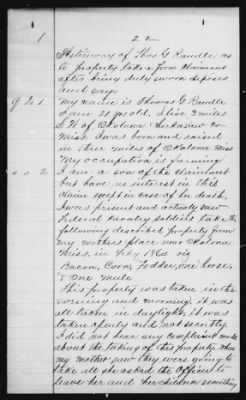 1
22
Testimony of Thos G Randle as
to property taken from claimant
after being duly sworn deposes
and says
Q 2 & 1 My name is Thomas G Randle
I am 21 yrs old, I live 3 miles
S.W. of Okolona Chickasaw Co
Miss. I was born and raised
in three miles of Okolona Miss
My occupation is farming
2 I am a son of the claimant
but have no interest in this
claim except in case of her death.
I was present and actually saw
Federal Cavalry soldiers take the
following described property from
my mothers place near Okolona
Miss, in Feby 1864 viz
Bacon, Corn, Fodder, one horse
& one mule
This property was taken in the
evening and morning, it was
all taken in daylight, it was
taken openly and not secretly
I did not hear any complaint made
about the taking of this property. When
my mother saw they were going to
take all she asked the officers to
leave her and her children something